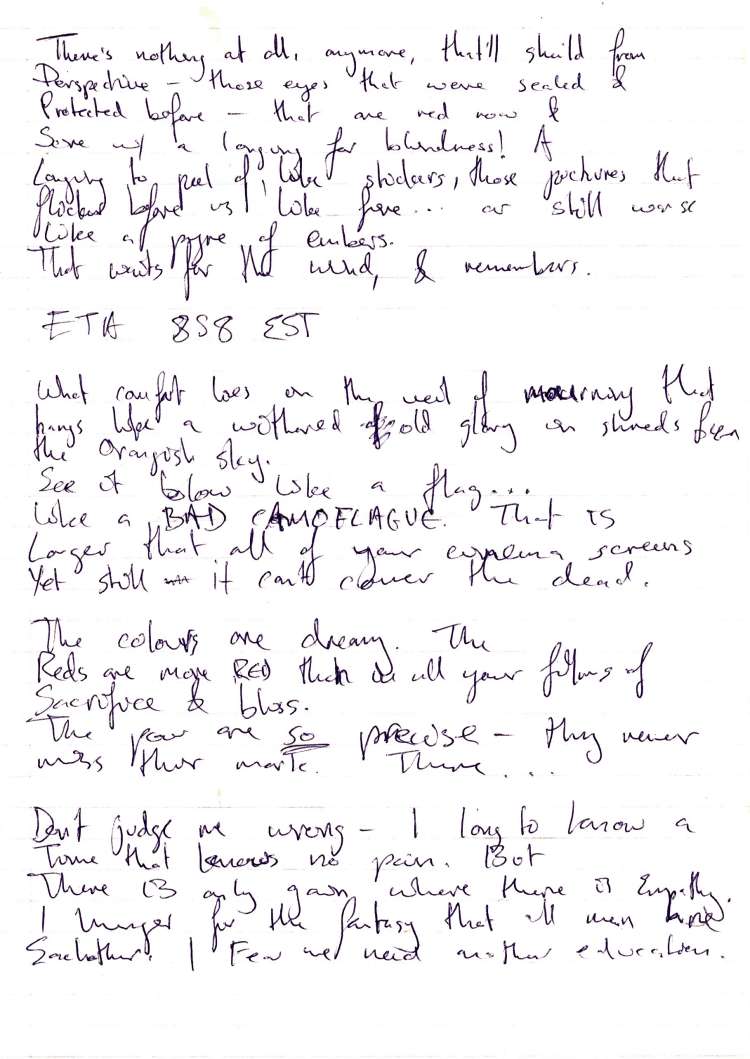 There's nothing at all, anymore, that'll sheild from
Perspective – those eyes that were sealed &
Protected before – that are red now &
Sore w/ a longing for blindness! A
Longing to peel off, like stickers, those pictures that
flickered before us like fire... or still worse
Like a pyre of embers.
That waits for the wind, & remembers.
ETA 858 EST
What comfort lies in the veil of mourning that
hangs like a withered old glory in shreds from
the Orangish sky.
See it blow like a flag...
Like a BAD CAMOFLAGUE. That is
Larger that all of your screens
Yet still it can't cover the dead.
The colours are dreamy. The
Reds are more RED than in all your films of
Sacrifice & bliss.
The are so precise – they never
miss their mark. There...
Don't judge me wrong – I long to know a
Time that knows no pain. But
There is only gain where there is Empathy.
I hunger for the fantasy that all men
Eachother. I Fear we need another education.